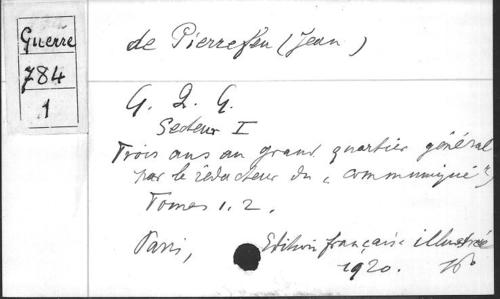 Guerre
784
1
de Pierrefeu (Jean)
G. Q. G.
Secteur I
Trois ans au grand quartier général
par le rédacteur du "communiqué")
Tomes 1. 2.
Paris, Edition française illustrée
1920.